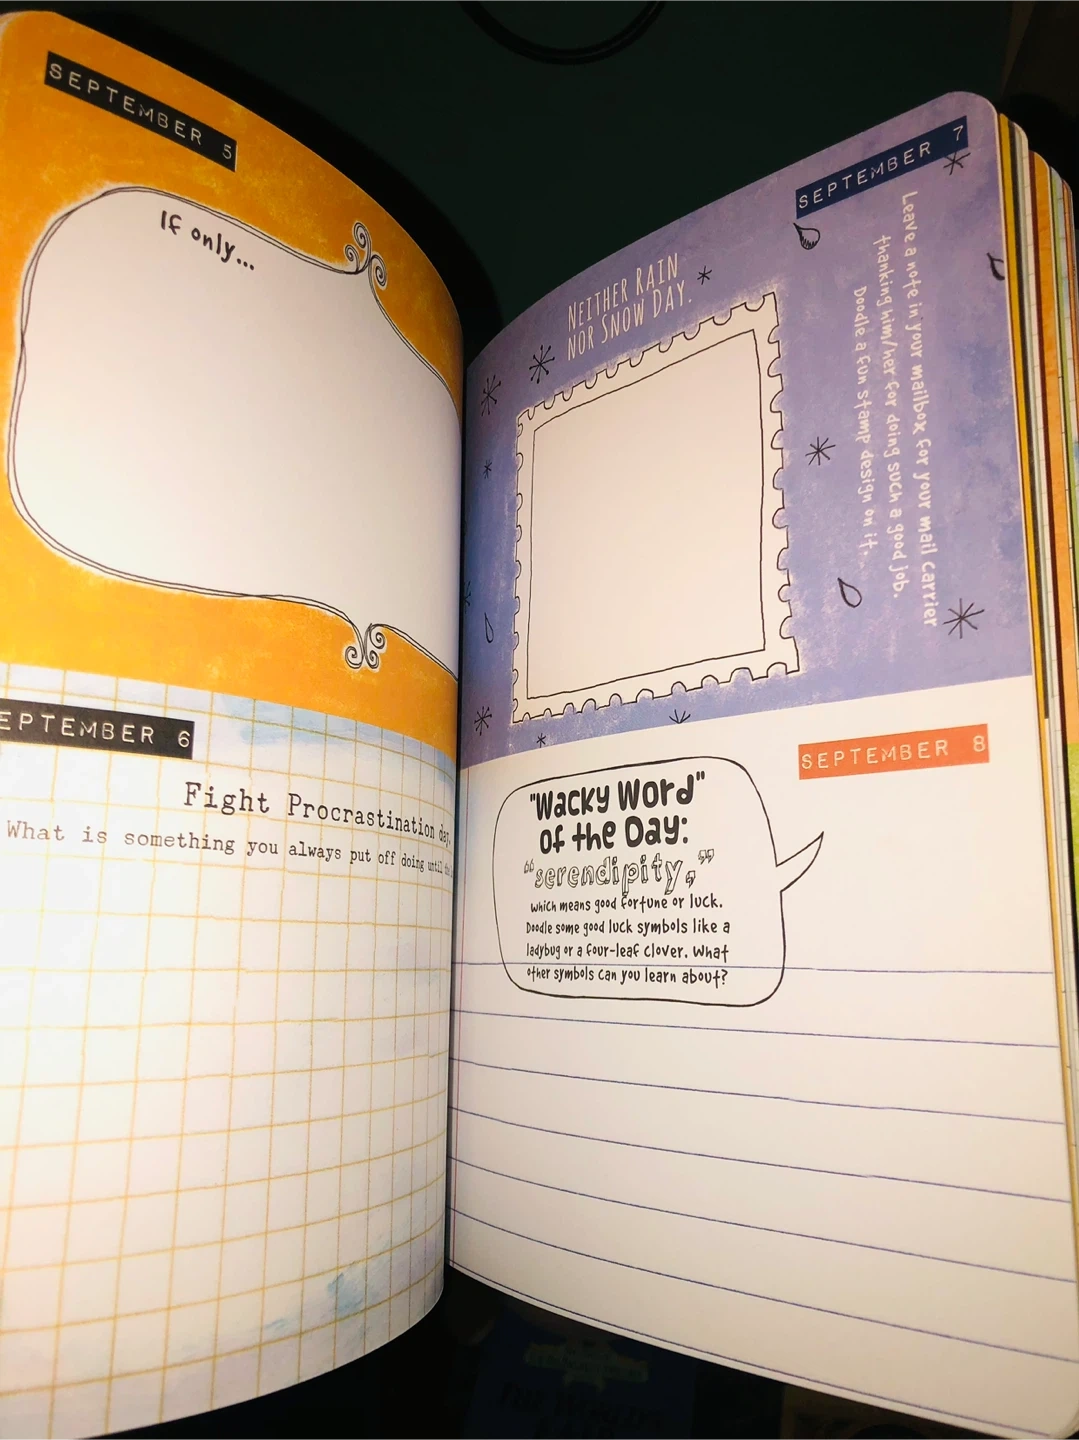 SEPTEMBER 5
If only...
EPTEMBER 6
Fight Procrastination day.
What is something you always put off doing until
SEPTEMBER 7
Leave a note in your mailbox for your mail carrier
thanking him/her for doing such a good job.
Doodle a fun stamp design on it.
NEITHER RAIN
NOR SNOW DAY.
SEPTEMBER 8
"Wacky Word"
of the Day:
"serendipity,"
which means good fortune or luck.
Doodle some good luck symbols like a
ladybug or a four-leaf clover. What
other symbols can you learn about?